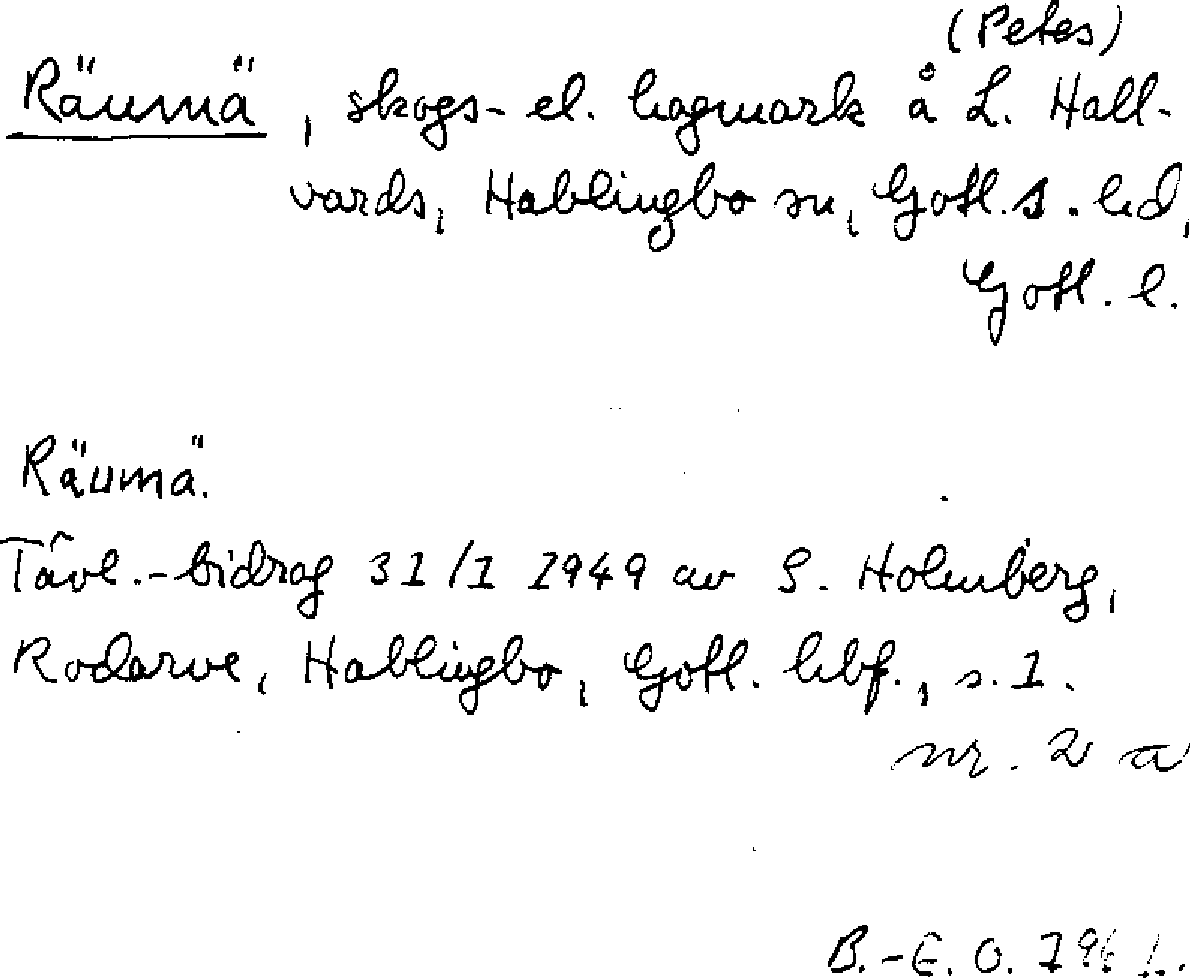 (Petes)
Räumä, skogs- el. hagmark å L. Hall-
vards, Hablingbo sn, Gotl. s. hd,
Gotl. l.
Räumä.
Tävl.-bidrag 31/1 1949 av S. Holmberg,
Rodarve, Hablingbo, Gotl. hbf., s. 1.
nr. 2 a
B.-E. O. 196